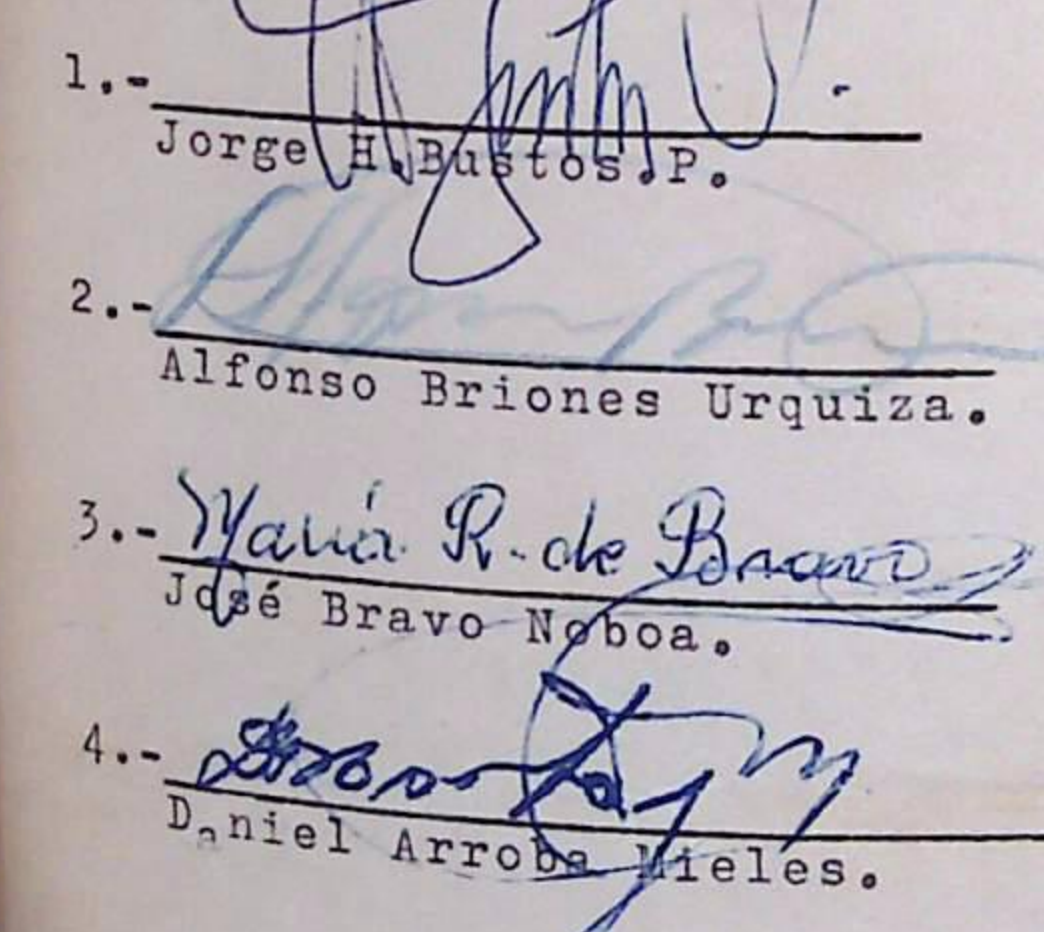 1.-
Jorge H.Bustos.P.
2.-
Alfonso Briones Urquiza.
3.- María R. de Bravo
José Bravo Noboa.
4.-
Daniel Arroba Mieles.